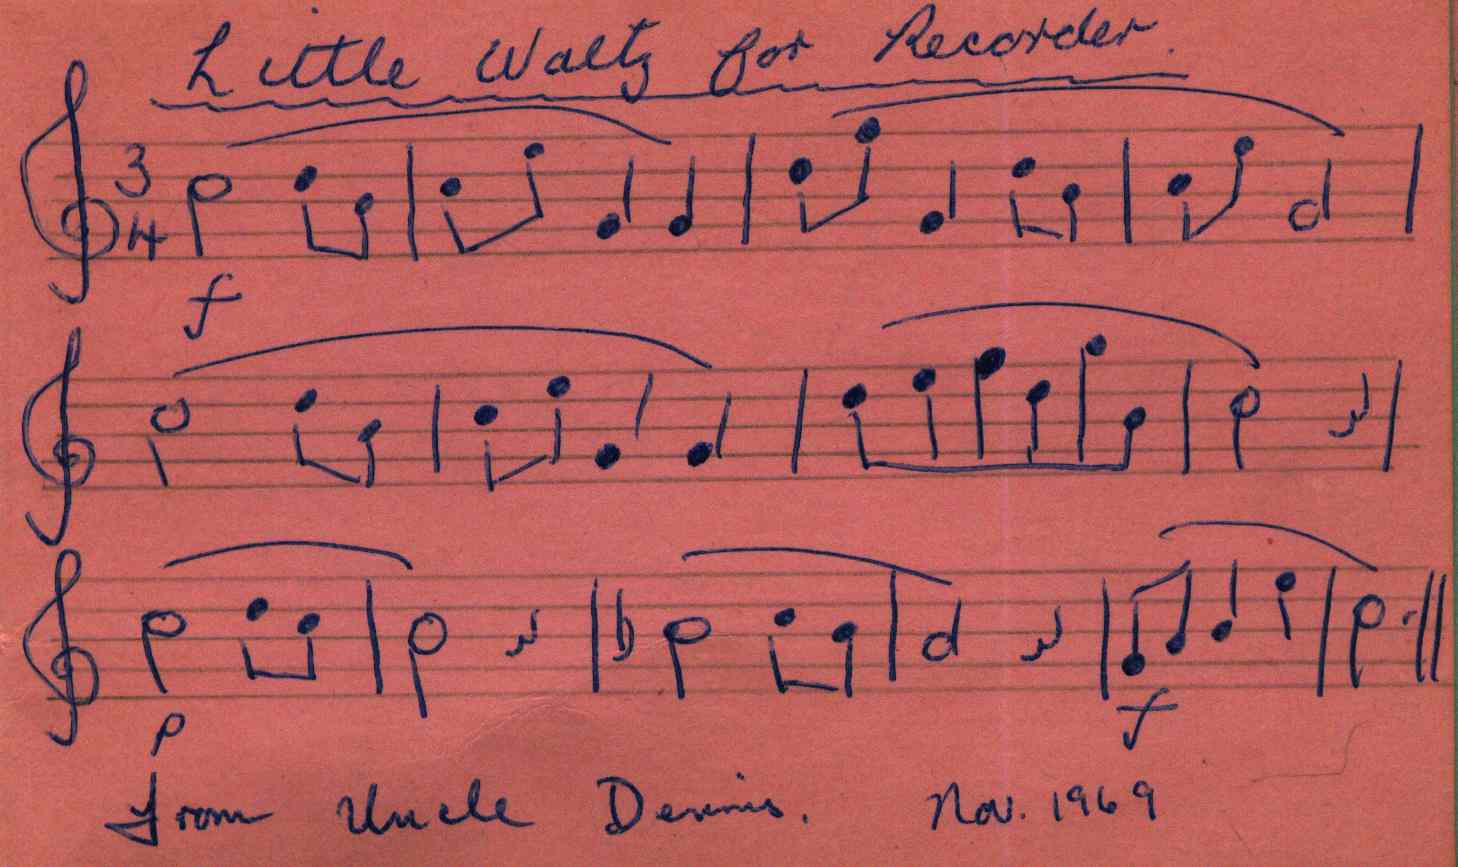 Little Waltz for Recorder.
3
4
f
p
f
From Uncle Dennis. Nov. 1969